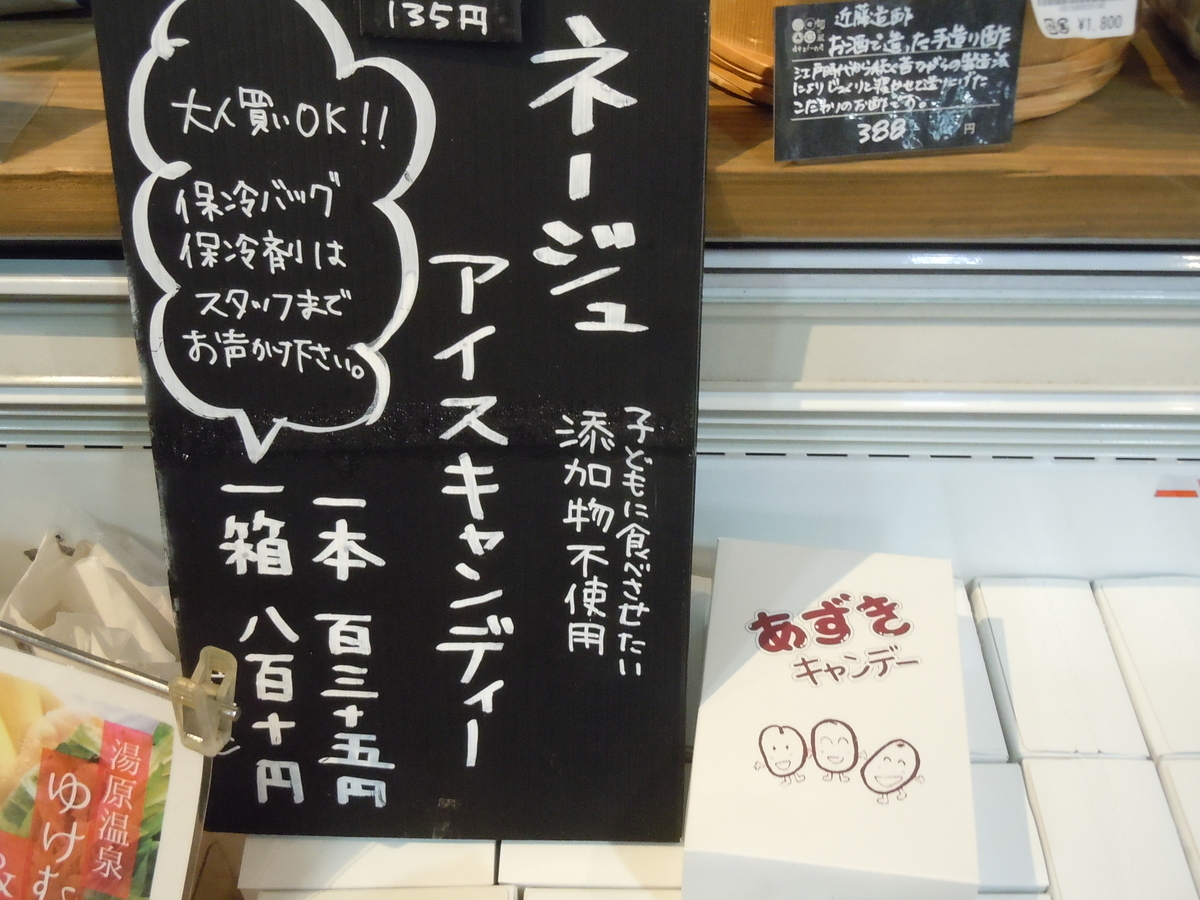 135円
ネージュ
アイスキャンディー
子どもに食べさせたい
添加物不使用
一本 百三十五円
一箱 八百十円
大人買いOK!!
保冷バッグ
保冷剤は
スタッフまで
お声かけ下さい。
近藤造酢
お酒で造った手造り酢
江戸時代から続く昔ながらの製造法
によりじっくりと寝かせて造りあげた
こだわりのお酢です。
388円
¥1,800
あずき
キャンデー
湯原温泉
ゆけむ
&